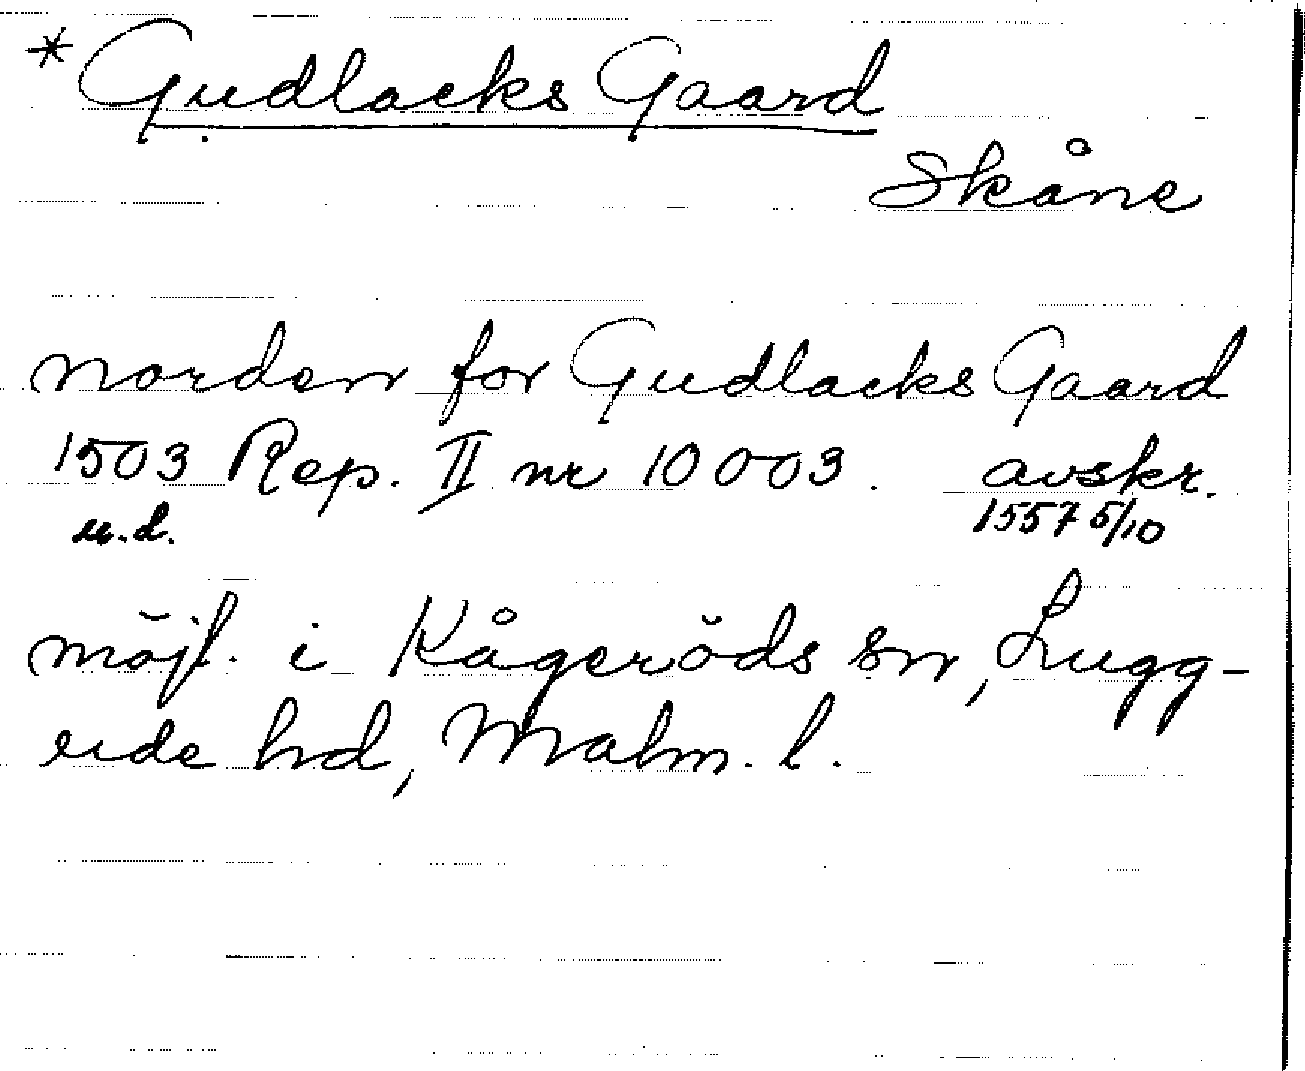 * Gudlacks Gaard
Skåne
norden for Gudlacks Gaard
1503 Rep. II nr 10003. avskr.
u.d. 1557 5/10
möjl. i Kågeröds sn, Lugg-
ude hd, Malm. l.